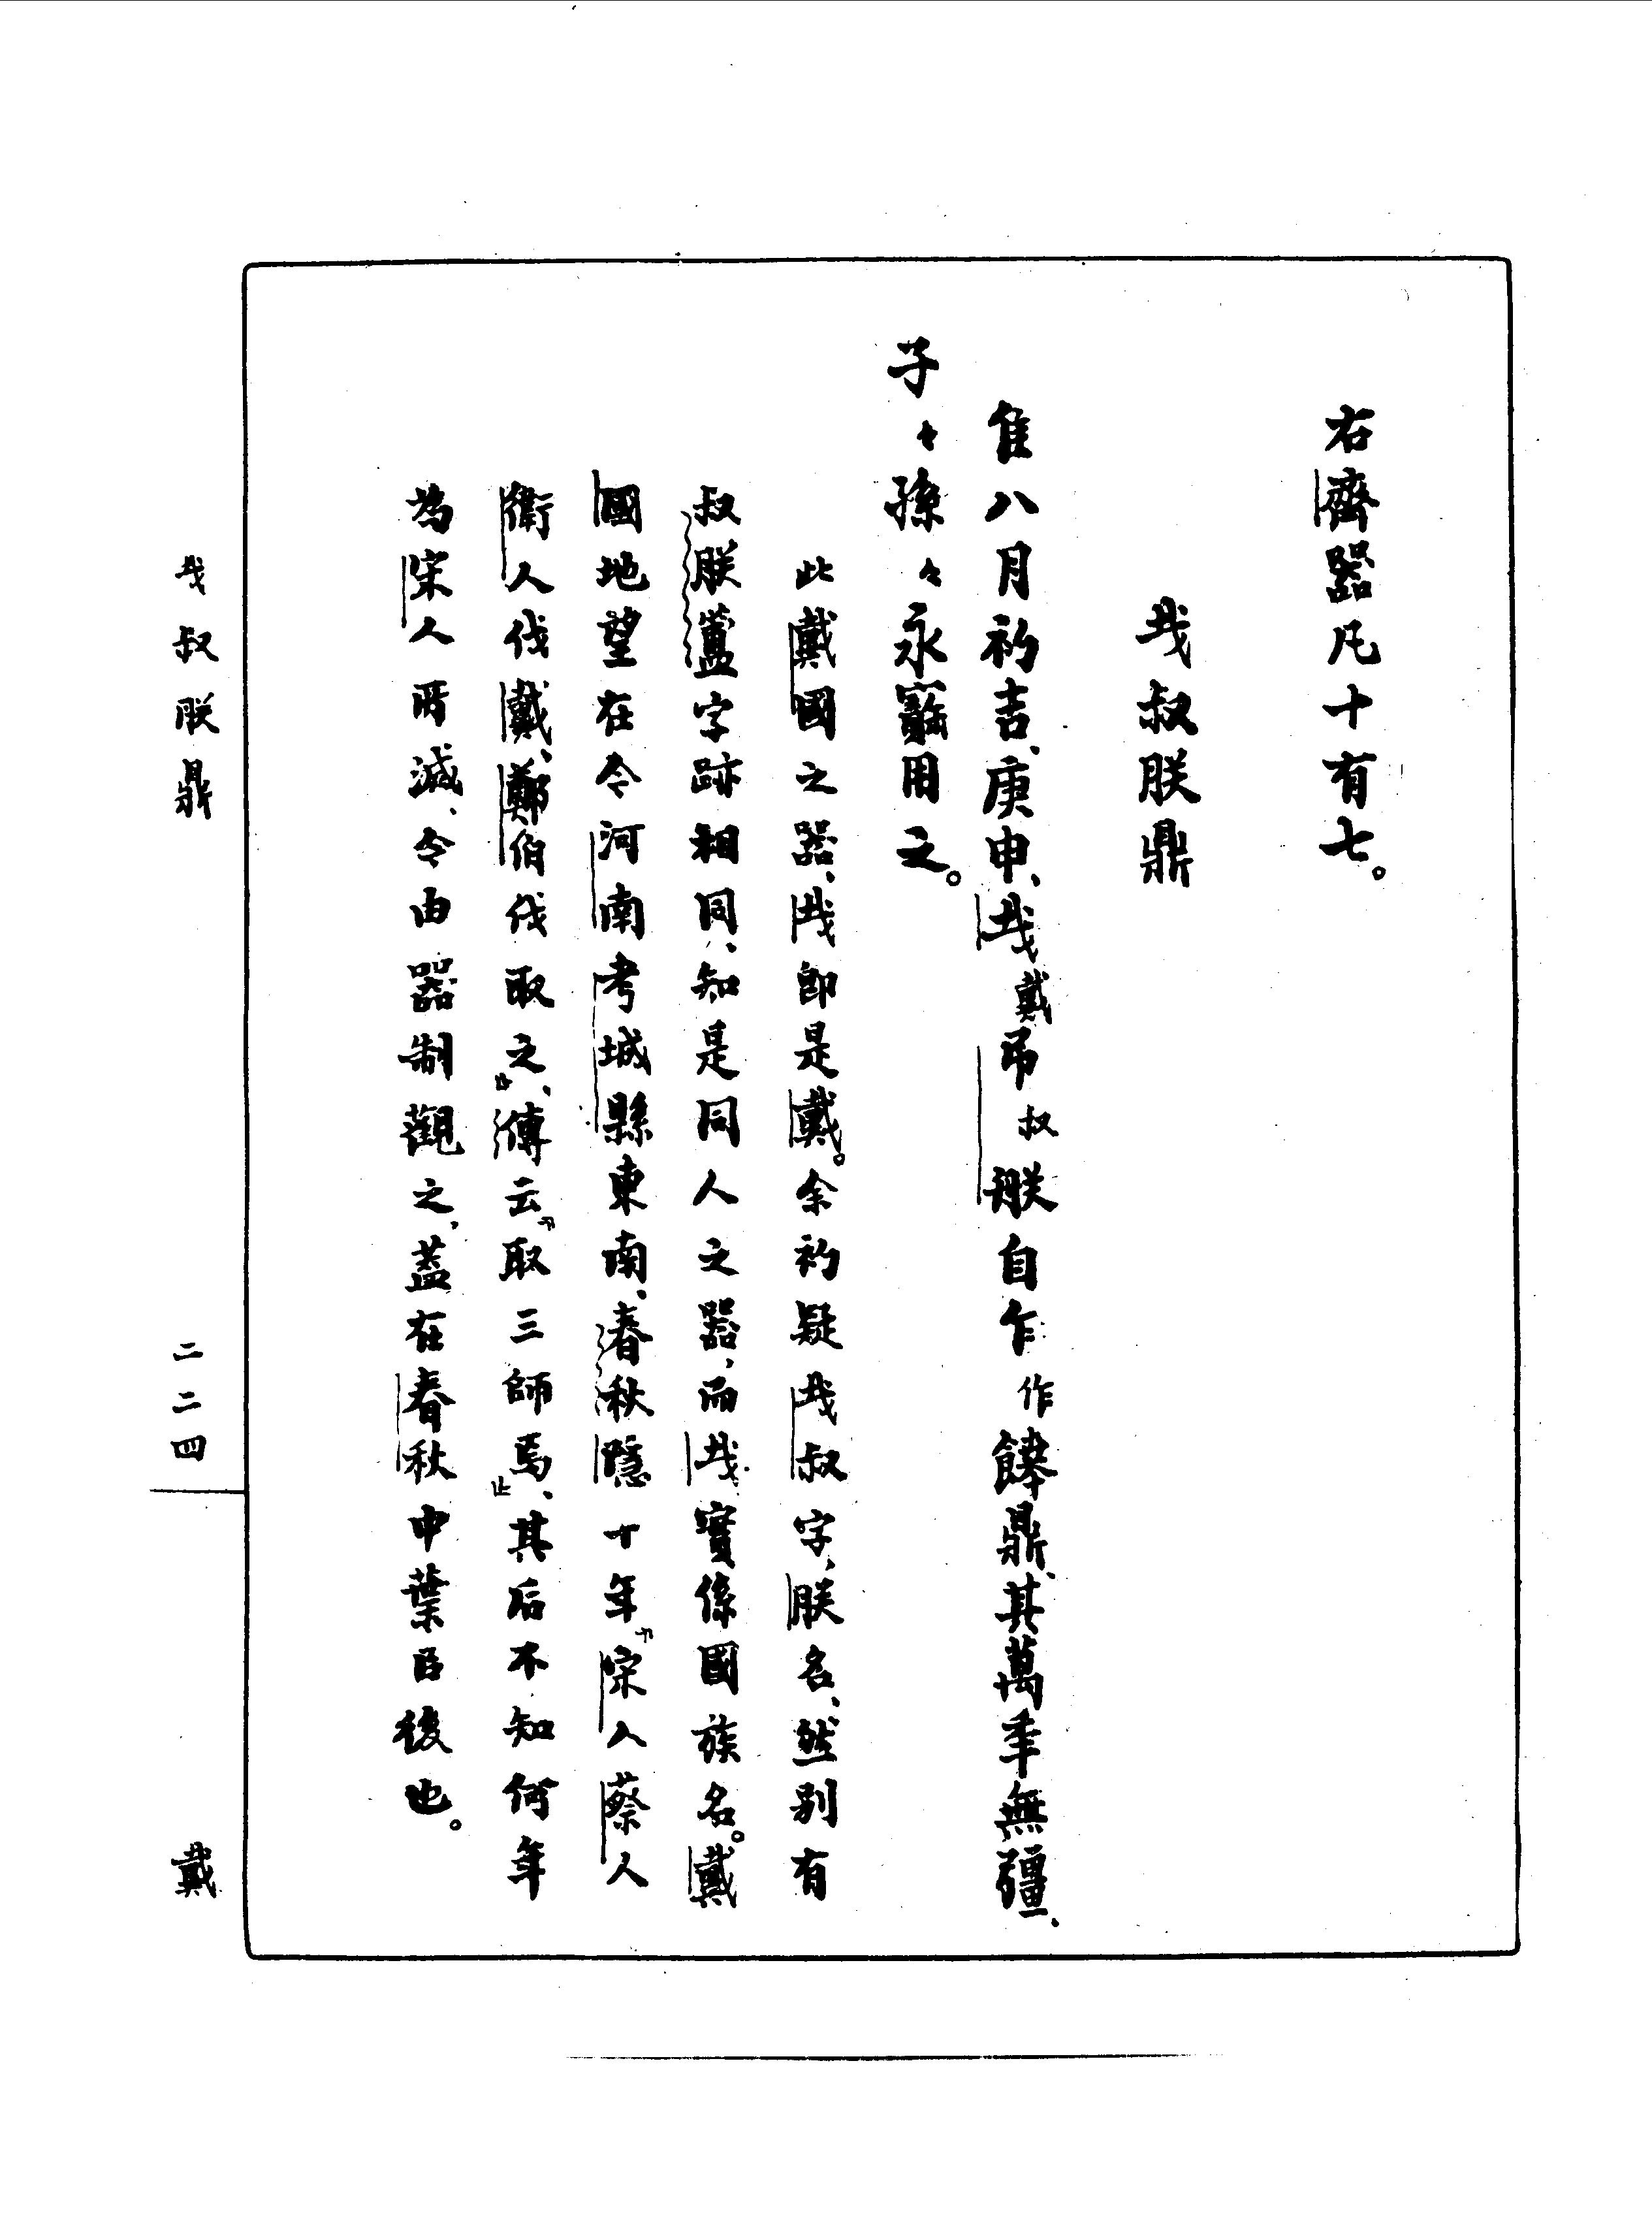 右齊器凡十有七。
𢦏叔朕鼎
隹八月初吉、庚申、𢦏戴弔叔朕自乍作饙鼎、其萬年無彊、
子〻孫〻永寶用之。
此戴國之器、𢦏即是戴。余初疑𢦏叔字、朕名、然別有
叔朕簠字跡相同、知是同人之器、而𢦏實係國族名。戴
國地望在今河南考城縣東南、春秋隱十年『宋人蔡人
衛人伐戴、鄭伯伐取之』、傳云『取三師焉』、其后不知何年
為宋人所滅、今由器制觀之、蓋在春秋中葉㠯後也。
𢦏叔朕鼎
二二四
戴